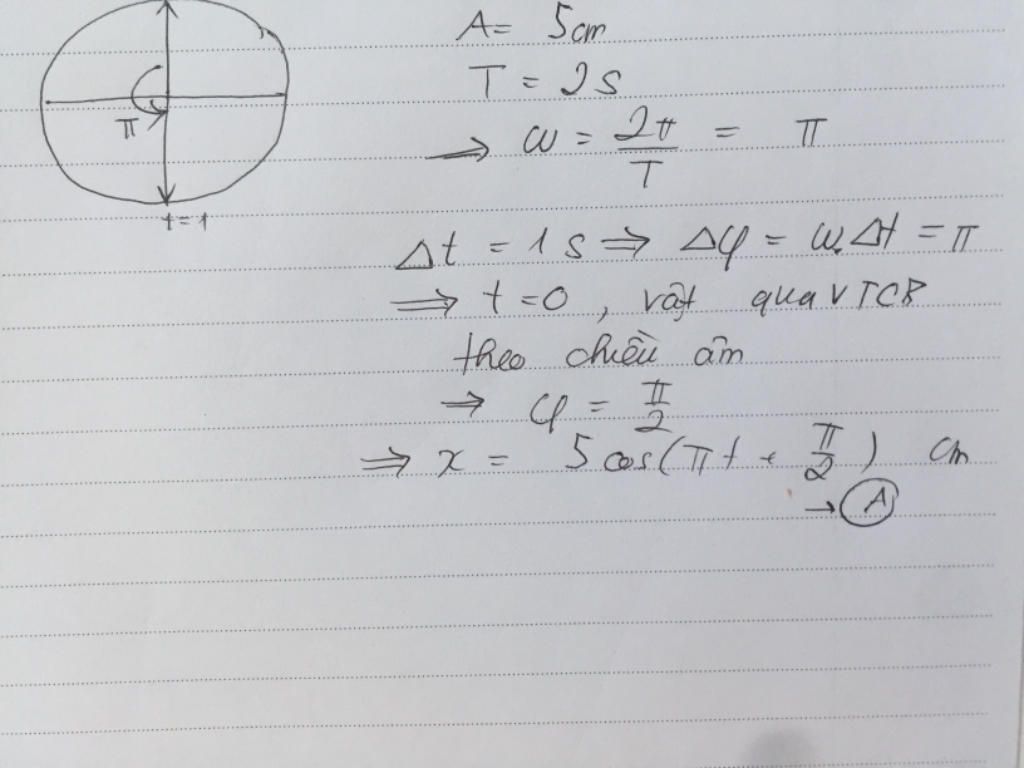 A = 5cm
T = 2s
⇒ ω = 2π/T = π
π
t=1
Δt = 1s ⇒ Δφ = ω.Δt = π
⇒ t=0, vật qua VTCB
theo chiều âm
⇒ φ = π/2
⇒ x = 5cos(πt + π/2) cm
→ A